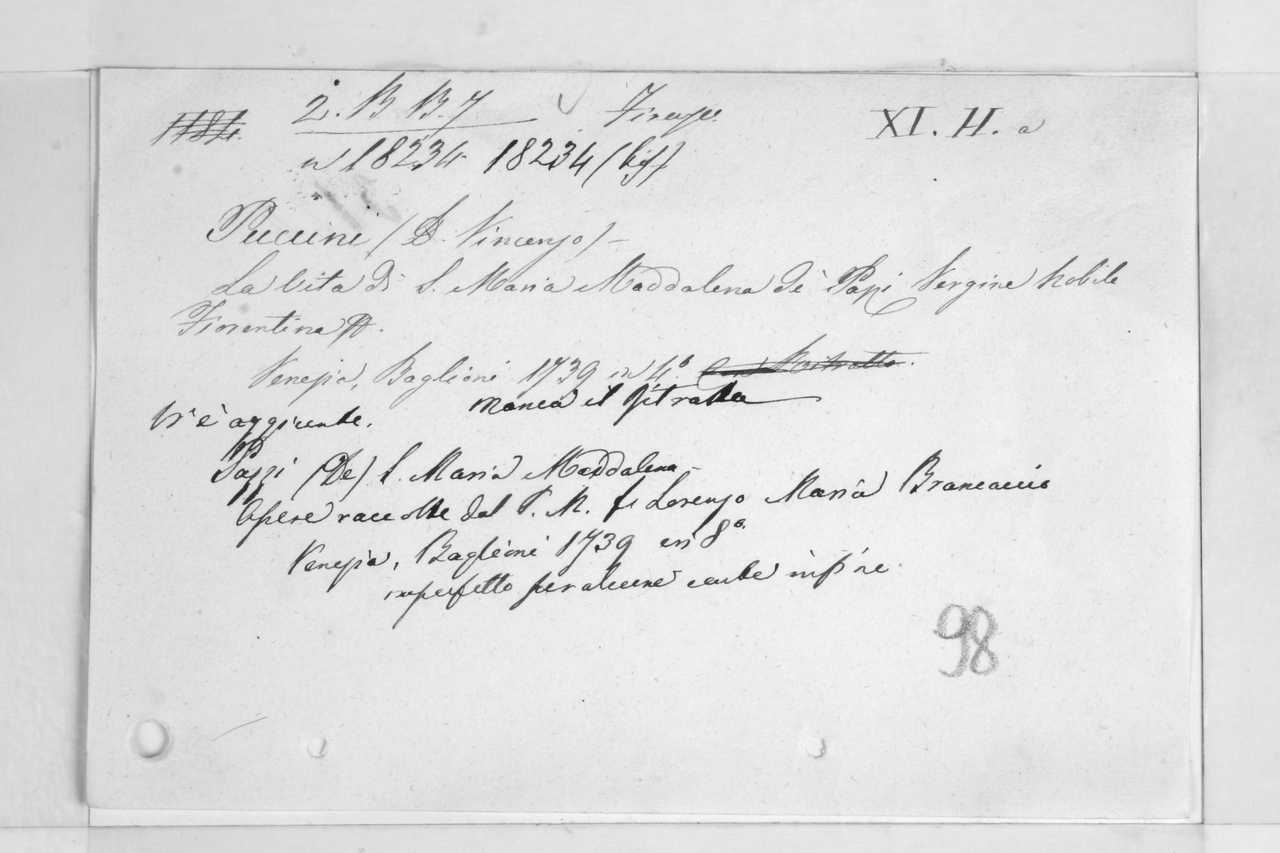 2. B B. 7 Firenze XI. H. a
n 18234 18234 (bis)
Puccini (D. Vincenzo) –
La Vita di S. Maria Maddalena de' Pazzi Vergine Nobile
Fiorentina
Venezia, Baglioni 1739 in 4.° con Ritratto.
manca il ritratto
Vi è aggiunte.
Pazzi (De) S. Maria Maddalena –
Opere raccolte dal P. M. f. Lorenzo Maria Brancaccio
Venezia, Baglioni 1739 in 8°.
imperfetto per alcune carte in fine.
98